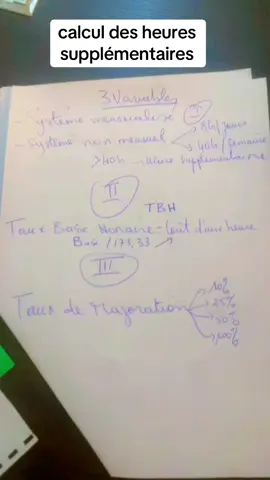 calcul des heures
supplémentaires
3 Variables
I
- Système mensualisé
- Système non mensuel
8h/jours
40h/semaine
>40h → heure supplémentaire
II
TBH
Taux Base Horaire = Coût d'une heure
Base/173,33
III
Taux de Majoration
10%
25%
50%
100%